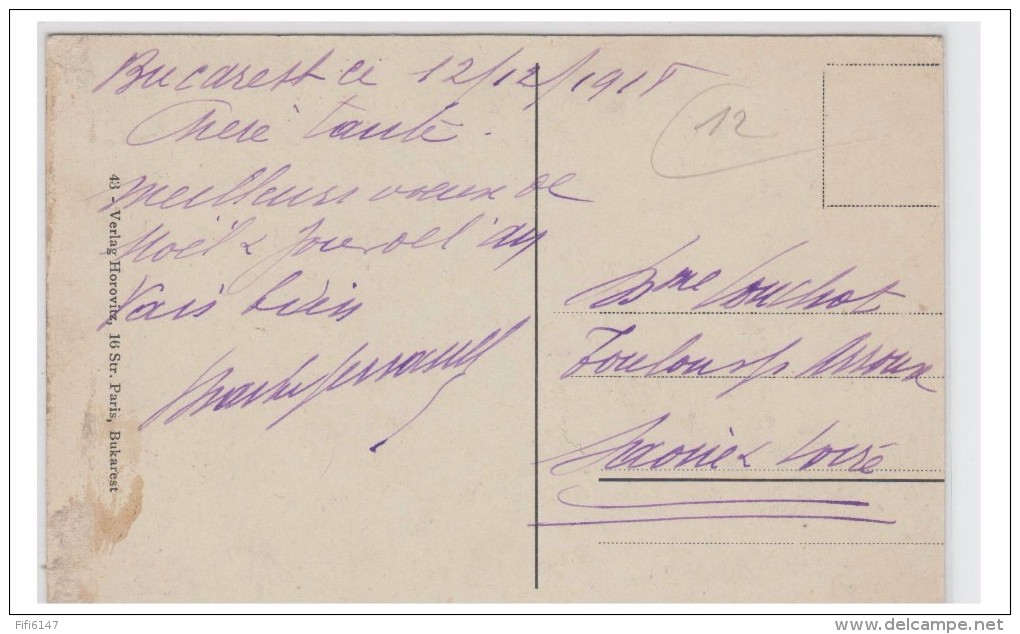 Bucarest ce 12/12/1918
Chere tante.
meilleurs voeux de
Noël & Jour de l'an
Vais bien
12
Mme Couchot
Toulon s/ Arroux
Saone & Loire
43 - Verlag Horovitz, 16 Str. Paris, Bukarest
Fifi6147